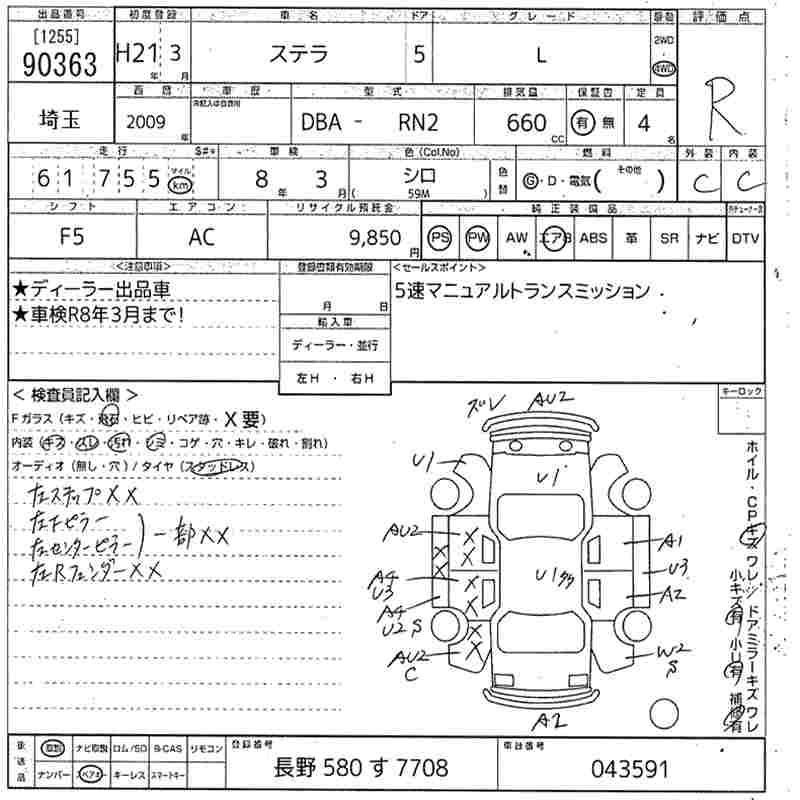 出品番号 初度登録 車名 ドア グレード 駆動 評価点
[1255] 90363 H21 年 3 月 ステラ 5 L 2WD ・ 4WD R
西暦 車歴 型式 排気量 保証書 定員
埼玉 2009 年 未記入は自家用 DBA - RN2 660 CC 有 無 4 名
走行 $#* 車検 色(Col.No) 燃料 外装 内装
61755 マイル km 8 年 3 月 シロ ( 59M ) 色替 G・D・電気( その他 ) C C
シフト エアコン リサイクル預託金 純正装備品
F5 AC 9,850 円 PS PW AW エアB ABS 革 SR ナビ DTV
<注意事項> 登録書類有効期限 <セールスポイント>
★ディーラー出品車 5速マニュアルトランスミッション
★車検R8年3月まで! 月 日
輸入車
ディーラー・並行
左H ・ 右H
< 検査員記入欄 > キーロック
Fガラス (キズ・飛石・ヒビ・リペア跡・X要)
内装 (キズ・スレ・汚れ・シミ・コゲ・穴・キレ・破れ・割れ)
オーディオ (無し・穴) / タイヤ (スタッドレス)
左ステップXX
左Fピラー
左センターピラー ) 一部XX
左RフェンダーXX
ズレ AU2
U1 U1
AU2 XX A1
XX U3
A4 U3 X U1多 A2
A4 U2 S X
AU2 C XX W2 S
A2
ホイル・CPキズ ワレ / ドアミラーキズ ワレ
小キズ有 小U有 補修有
後送品 取説 ナビ取説 ロム/SD B-CAS リモコン 登録番号 車台番号
ナンバー スペアキー キーレス スマートキー 長野 580 す 7708 043591